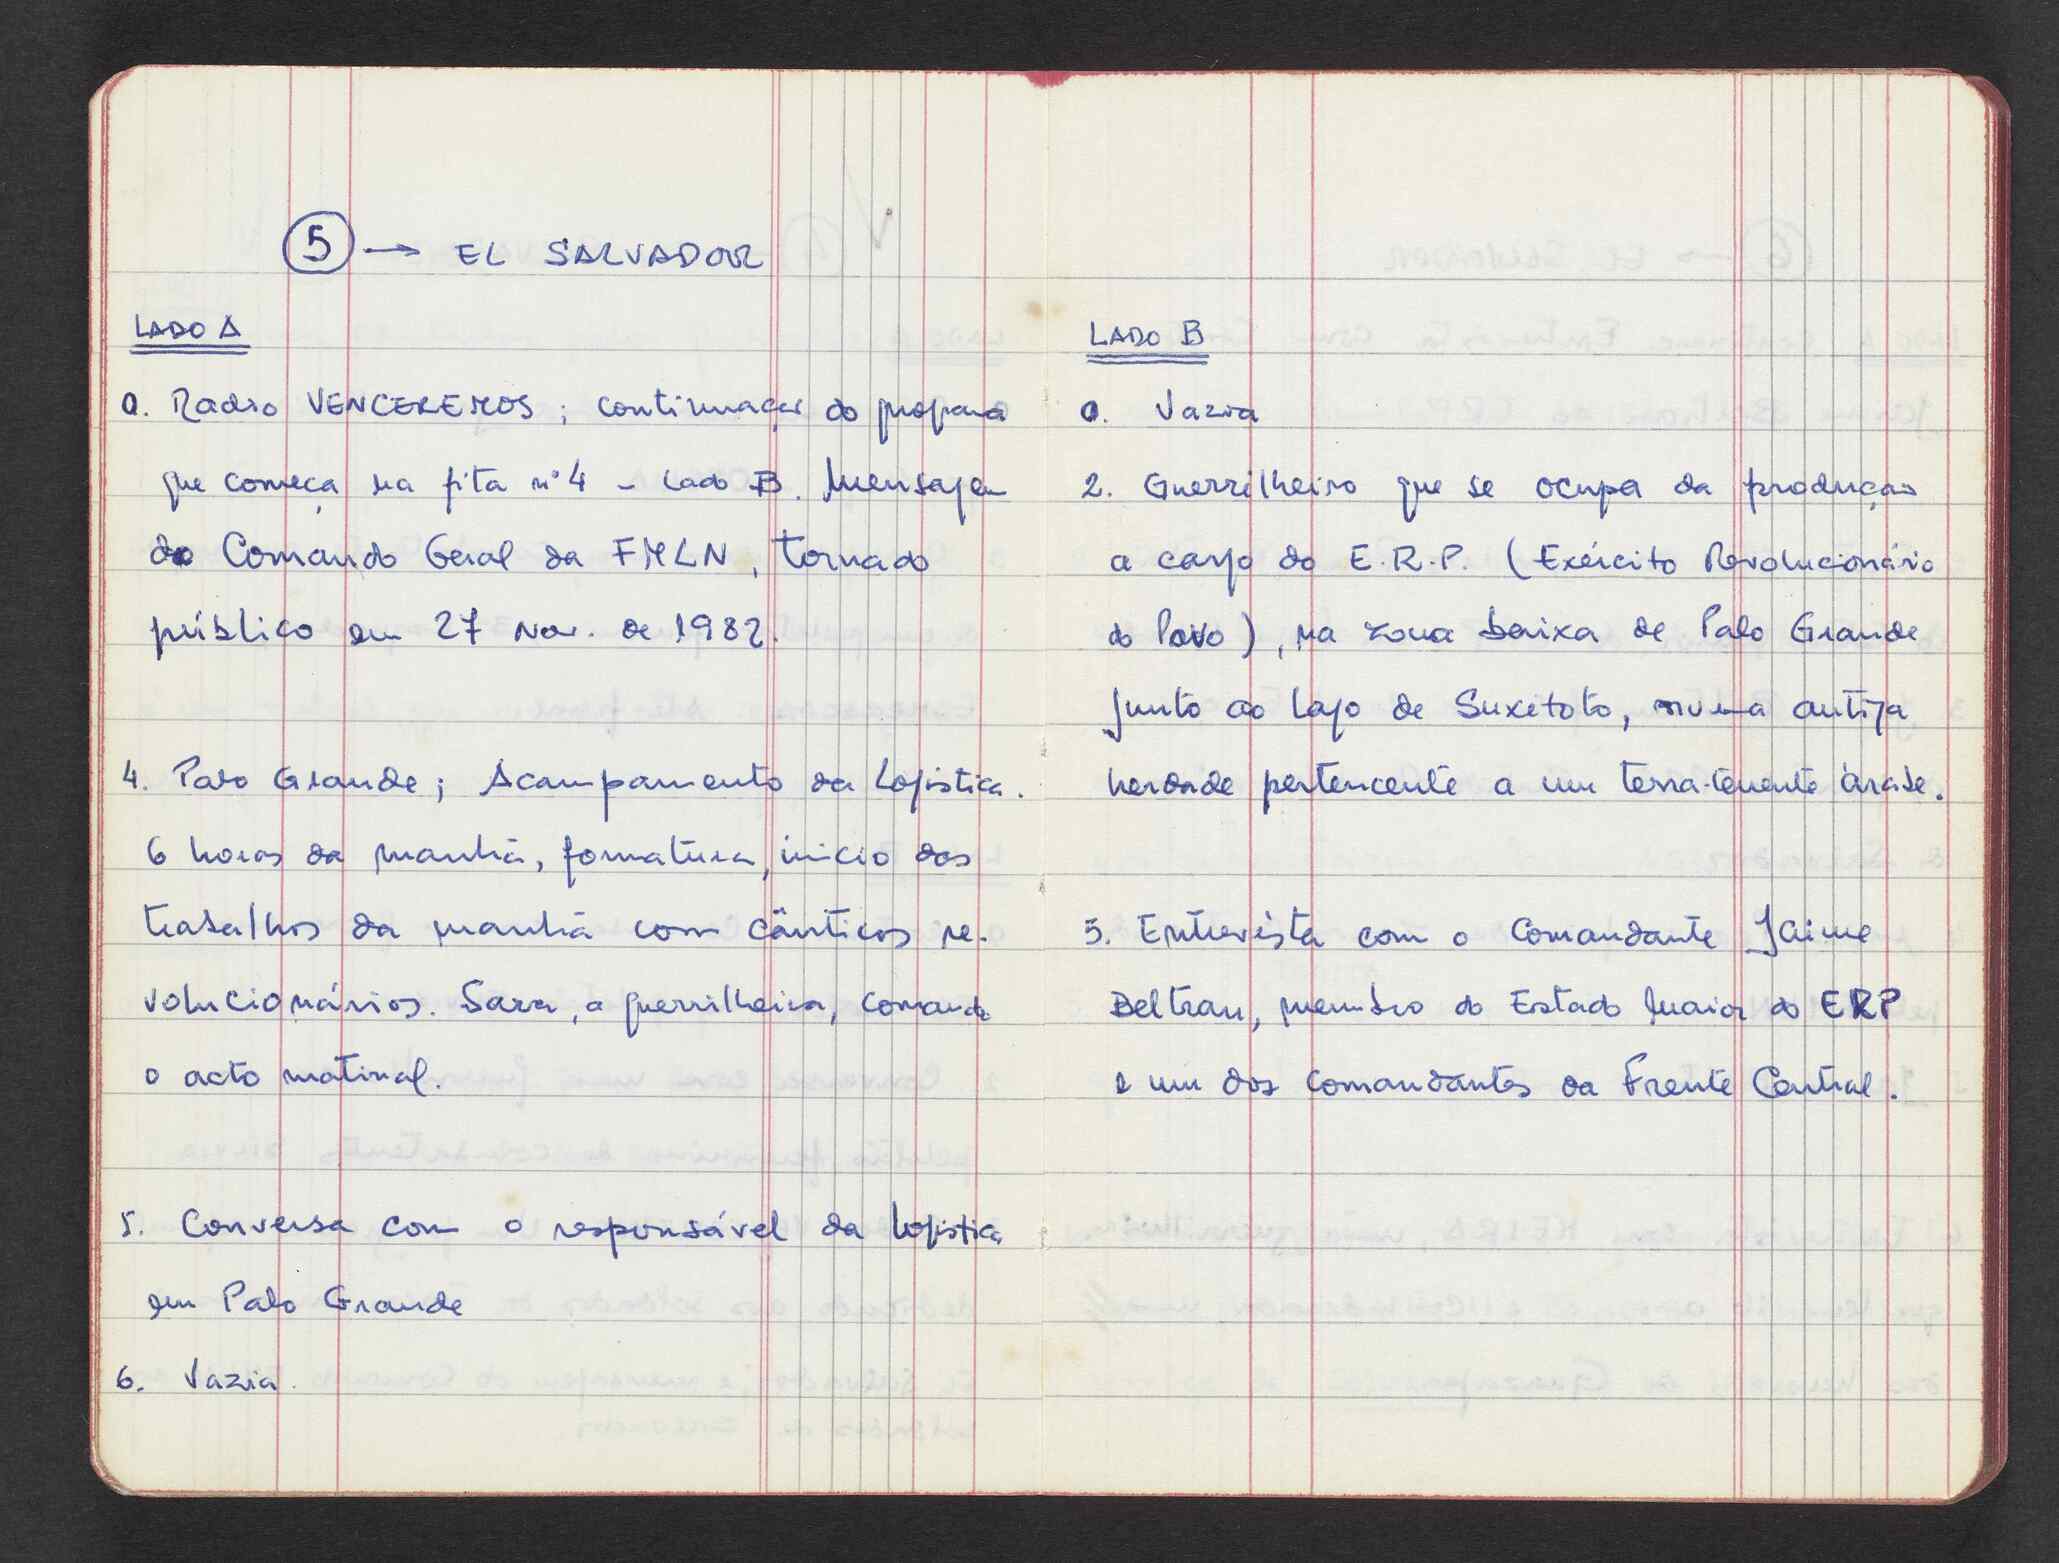 5 → EL SALVADOR
LADO A
0. Radio VENCEREMOS; continuação do programa
que começa na fita nº 4 - Lado B. Mensagem
do Comando Geral da FMLN, tornado
público em 27 Nov. de 1982.
4. Palo Grande; Acampamento da Logística.
6 horas da manhã, formatura, início dos
trabalhos da manhã com cânticos re-
volucionários. Sara, a guerrilheira, comanda
o acto matinal.
5. Conversa com o responsável da Logística
em Palo Grande
6. Vazia.
LADO B
0. Vazia
2. Guerrilheiro que se ocupa da produção
a cargo do E.R.P. (Exército Revolucionário
do Povo), na zona baixa de Palo Grande
junto ao Lago de Suxitoto, numa antiga
herdade pertencente a um terra-tenente árabe.
3. Entrevista com o Comandante Jaime
Beltran, membro do Estado Maior do ERP
e um dos comandantes da Frente Central.